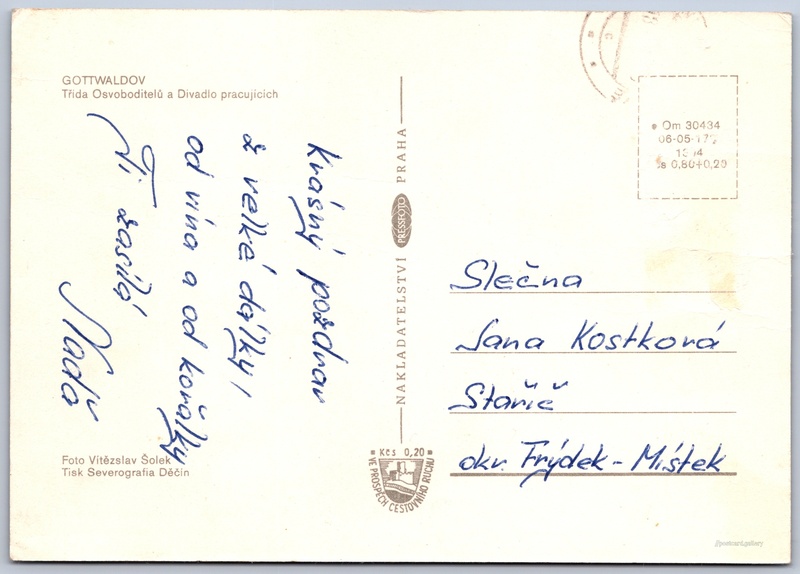 GOTTWALDOV
Třída Osvoboditelů a Divadlo pracujících
Krásný pozdrav
z velké dálky,
od vína a od kořalky
Ti zasílá
Naďa
Foto Vítězslav Šolek
Tisk Severografia Děčín
NAKLADATELSTVÍ PRESSFOTO PRAHA
Kčs 0,20
VE PROSPĚCH CESTOVNÍHO RUCHU
Om 30434
06-05-17
0,80+0,20
Slečna
Jana Kostková
Staříč
okr. Frýdek-Místek
@postcard.gallery